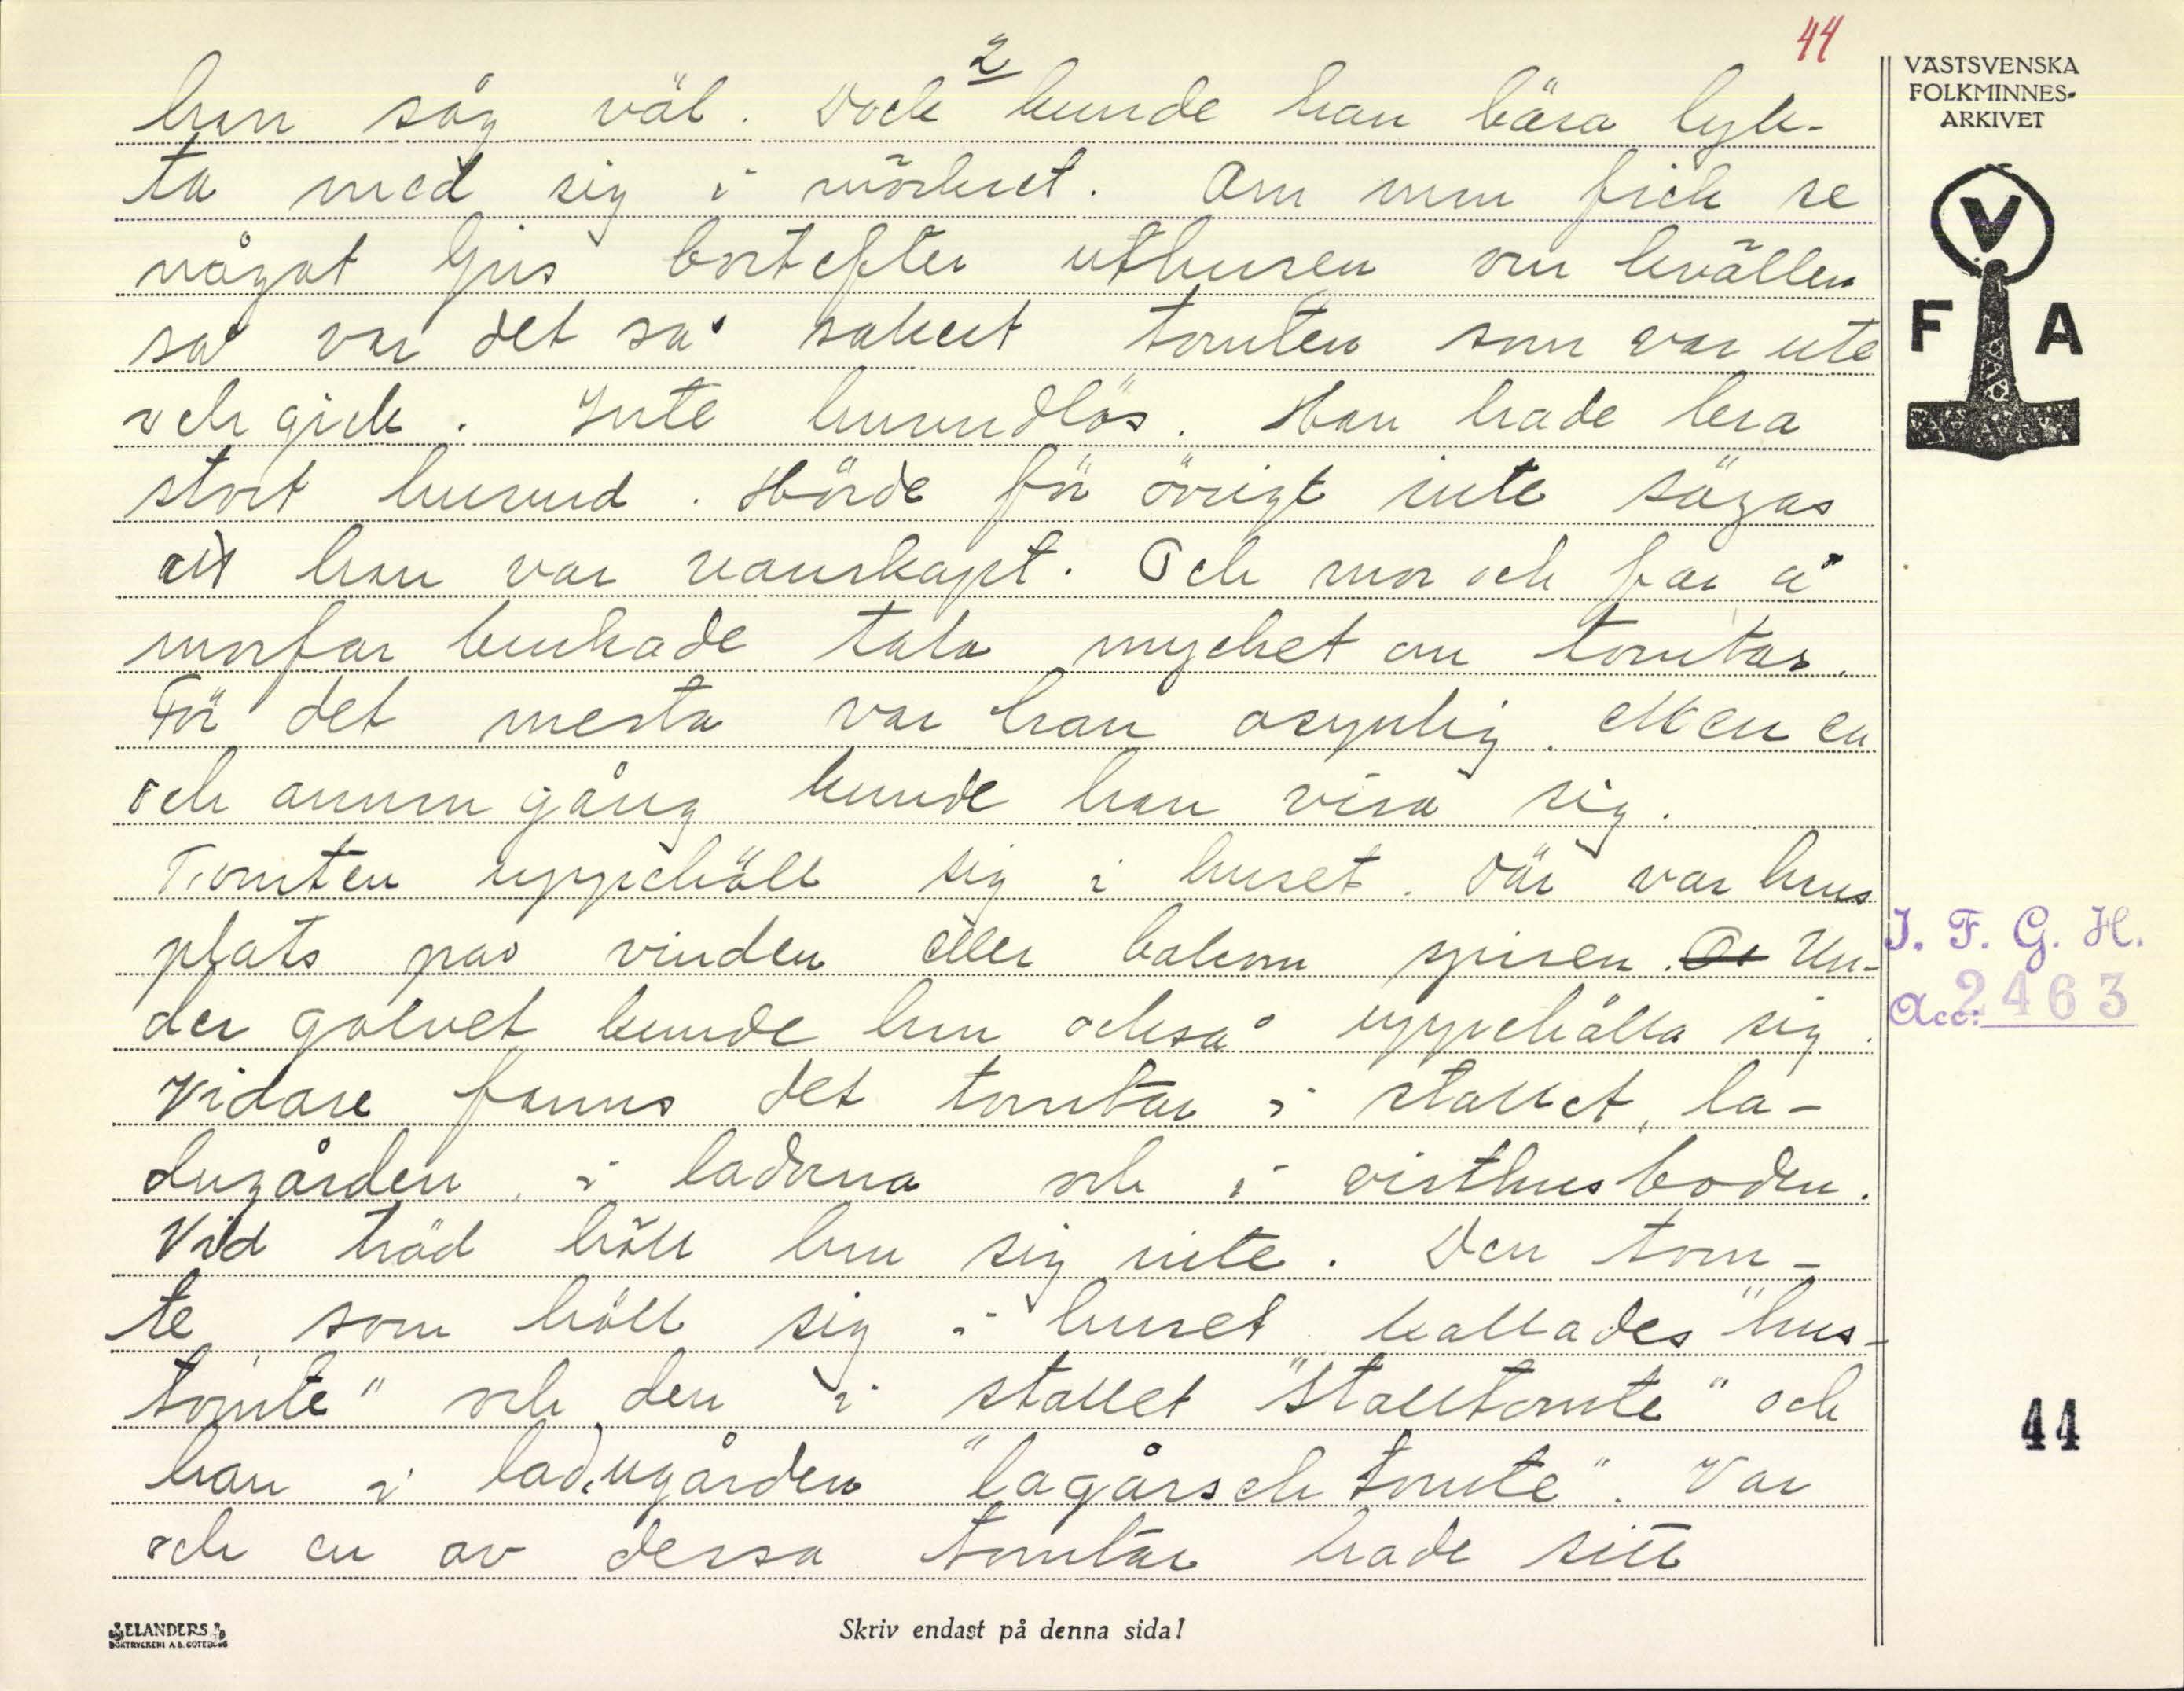 44
2
han såg väl. Dock kunde han bära lyk-
ta med sig i mörkret. Om man fick se
något ljus bortefter uthusen om kvällen
så var det så säkert tomten som var ute
och gick. Inte huvudlös. Han hade bra
stort huvud. Hörde för övrigt inte sägas
att han var vanskapt. Och mor och far å
morfar brukade tala mycket om tomtar.
För det mesta var han osynlig. Men en
och annan gång kunde han visa sig.
Tomten uppehöll sig i huset. Där var hans
plats på vinden eller bakom spisen. Un-
der golvet kunde han också uppehålla sig.
Vidare fanns det tomtar i stallet, la-
dugården, i ladorna och i visthusboden.
Vid träd höll han sig inte. Den tom-
te, som höll sig i huset kallades "hus-
tomte" och den i stallet "stalltomte" och
han i ladugården "lagårsch tomte". Var
och en av dessa tomtar hade sitt
VÄSTSVENSKA
FOLKMINNES-
ARKIVET
V
F A
I. F. G. H.
Acc: 2463
44
ELANDERS
BOKTRYCKERI A.B. GÖTEBORG
Skriv endast på denna sida!